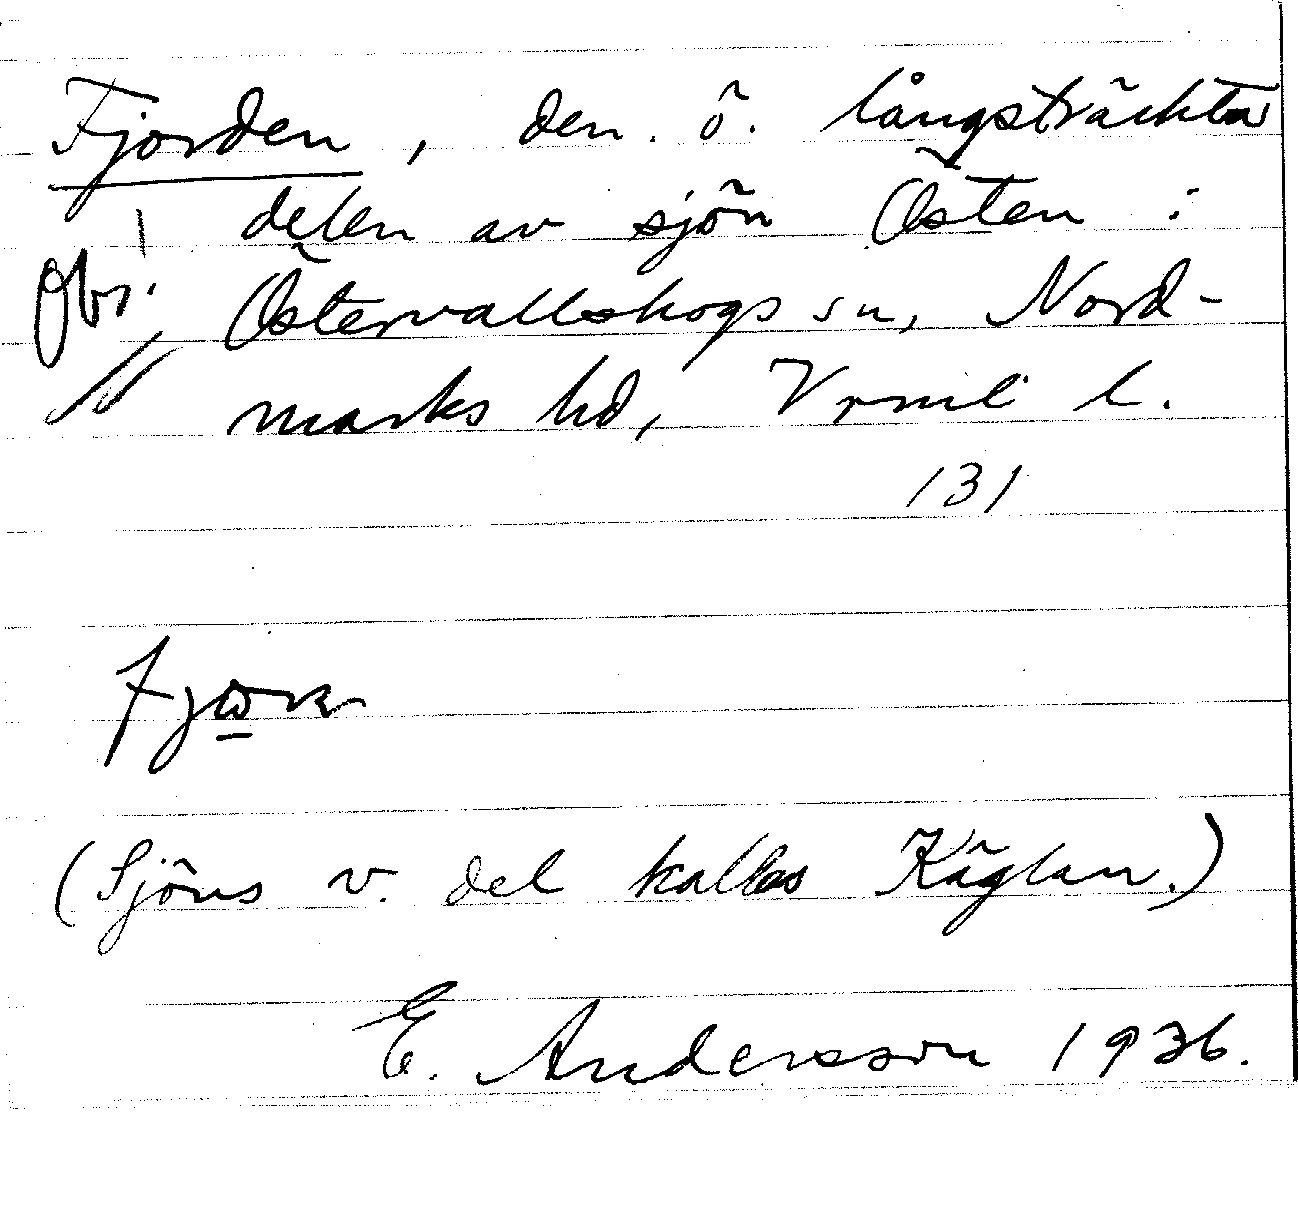 Fjorden, den ö. långsträckta
delen av sjön Östen i
Obs! Östervallskogs sn, Nord-
marks hd, Vrml l.
131
(Sjöns v. del kallas Käglan.)
E. Andersson 1936.